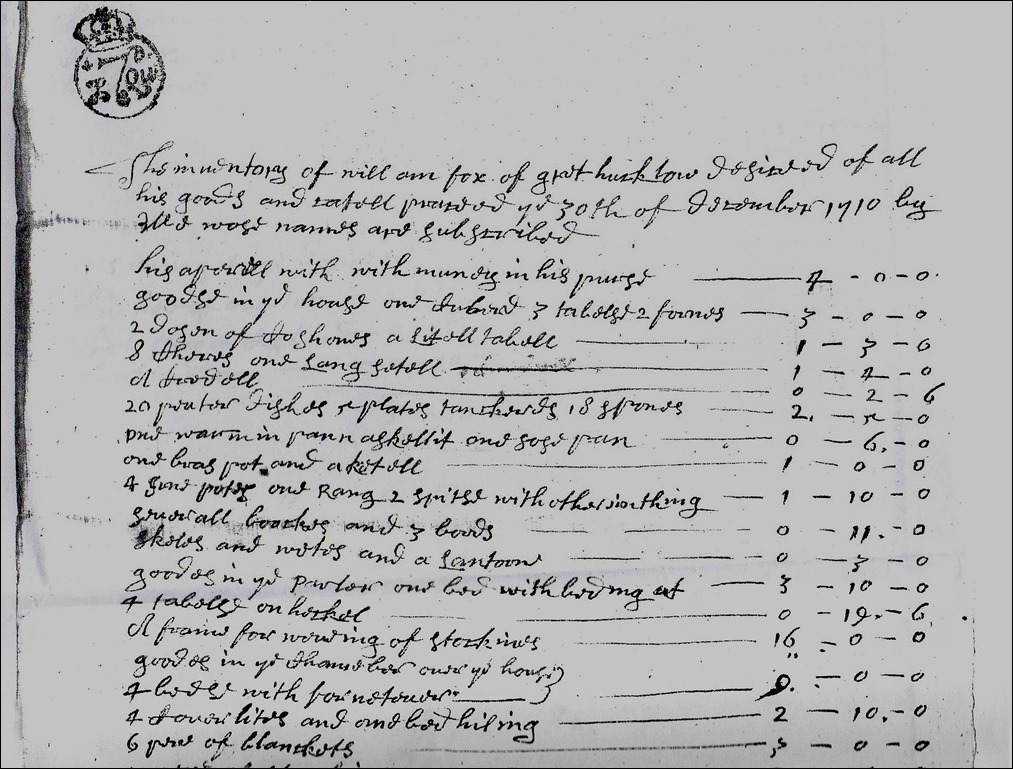 The inventory of will am fox of gret hucklow desiesed of all
his goods and catell praised ye 30th of december 1710 by
wose names are subscribed
his aperill with with muney in his purse 4 - 0 - 0
goodse in ye house one cuberd 3 tabelse 2 formes 3 - 0 - 0
2 dosen of coshones a litell tabell 1 - 3 - 0
8 cheres one lang setell 1 - 4 - 0
A credell 0 - 2 - 6
20 peuter dishes 5 plates tanckerds 18 spones 2 - 5 - 0
one warmin pann a skellit one sose pan 0 - 6 - 0
one bras pot and a ketell 1 - 0 - 0
4 potes one Rang 2 spitse with other 1 - 10 - 0
severall and 3 0 - 11 - 0
and and a lantorne 0 - 3 - 0
goodes in ye parler one bed with beding at 3 - 10 - 0
4 tabelse on 0 - 19 - 6
A frame for woveing of stockines 16 - 0 - 0
goodes in ye chamber over ye house
4 bedse with 9 - 0 - 0
4 coverlites and one bed hiling 2 - 10 - 0
6 pere of blanckets 3 - 0 - 0